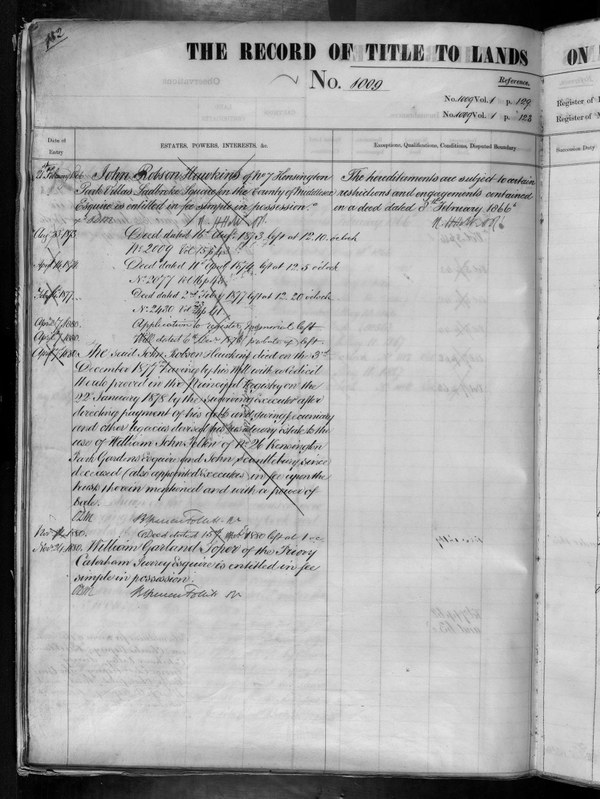 162
THE RECORD OF TITLE TO LANDS
ON
No. 1009
Reference.
No. 1009 Vol. 1 p. 129
No. 1009 Vol. 1 p. 123
Register of
Register of
Date of
Entry
ESTATES, POWERS, INTERESTS, &c.
Exceptions, Qualifications, Conditions, Disputed Boundary
Succession Duty
John Robson Hawkins of No 7 Kensington
Park Villas Ladbroke Square in the County of Middlesex
Esquire is entitled in fee simple in possession.
The hereditaments are subject to certain
restrictions and engagements contained
in a deed dated 3rd February 1866
Deed dated 16th Augt 1873 left at 12.10 o'clock
No 2009
April 14 1874
Deed dated 11th April 1874 left at 12.5 o'clock
No 2077
Deed dated 2nd Feby 1877 left at 12.20 o'clock
No 2430
April 7 1880.
Application to register memorial left
April 7 1880.
Will dated 6th Decr 1876 probate of left
The said John Robson Hawkins died on the 3rd
December 1877 having by his Will with a Codicil
thereto proved in the Principal Registry on the
22 January 1878 by the surviving executor after
directing payment of his debts and giving pecuniary
and other legacies devised his residuary estate to the
use of William John of No 26 Kensington
Park Gardens Esquire and John Scantlebury since
deceased (also appointed Executors) in fee upon the
trusts therein mentioned and with a power of
Sale.
Deed dated 15th Novr 1880 left at 1
Nov 24, 1880.
William Garland Soper of the Priory
Caterham Surrey Esquire is entitled in fee
simple in possession.